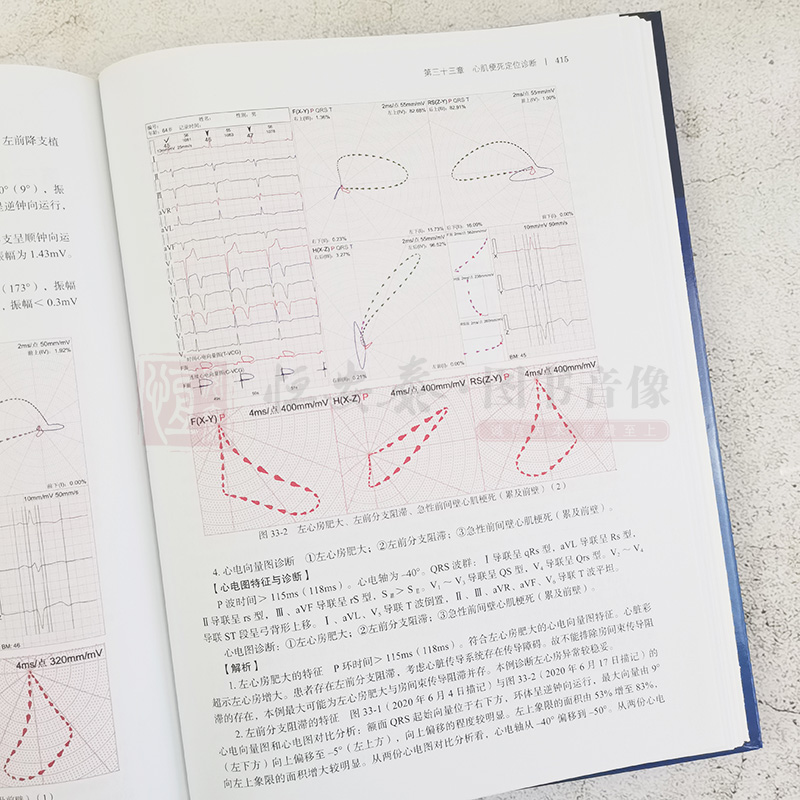 左前降支植
0°（9°），振
呈逆钟向运行，
支呈顺钟向运
振幅为 1.43mV。
（173°），振幅
，振幅＜0.3mV
2ms/点 50mm/mV
前上(IV)：1.92%
前下(I)：0.00%
10mm/mV 50mm/s
BM: 46
4ms/点 320mm/mV
第三十三章 心肌梗死定位诊断 | 415
编号： 姓名： 性别：男
年龄：64岁 记录时间：
F(X-Y) P QRS T
2ms/点 55mm/mV
右上(III)：1.36%
左上(IV)：82.68%
RS(Z-Y) P QRS T
2ms/点 55mm/mV
后上(III)：82.91%
前上(IV)：1.00%
aVR
aVL
aVF
右下(II)：0.23%
左下(I)：15.73%
后下(II)：16.09%
前下(I)：0.00%
H(X-Z) P QRS T
2ms/点 55mm/mV
右后(III)：3.27%
左后(IV)：96.52%
右前(II)：0.21%
左前(I)：0.00%
10mm/mV 50mm/s
BM: 45
时间心电向量图(T-VCG)
F面
连续心电向量图(C-VCG)
F面
F(X-Y) P
4ms/点 400mm/mV
H(X-Z) P
4ms/点 400mm/mV
RS(Z-Y) P
4ms/点 400mm/mV
恒芸泰 图书音像
图 33-2 左心房肥大、左前分支阻滞、急性前间壁心肌梗死（累及前壁）（2）
4. 心电向量图诊断 ①左心房肥大；②左前分支阻滞；③急性前间壁心肌梗死（累及前壁）。
【心电图特征与诊断】
P 波时间＞115ms（118ms）。心电轴为 –40°。QRS 波群：Ⅰ导联呈 qRs 型，aVL 导联呈 Rs 型，
Ⅱ导联呈 rs 型，Ⅲ、aVF 导联呈 rS 型，SⅢ＞SⅡ。V₁～V₃ 导联呈 QS 型，V₄ 导联呈 Qrs 型。V₂～V₄
导联 ST 段呈弓背形上移。Ⅰ、aVL、V₅ 导联 T 波倒置，Ⅱ、Ⅲ、aVR、aVF、V₆ 导联 T 波平坦。
心电图诊断：①左心房肥大；②左前分支阻滞；③急性前间壁心肌梗死（累及前壁）。
【解析】
1. 左心房肥大的特征 P 环时间＞115ms（118ms）。符合左心房肥大的心电向量图特征。心脏彩
超示左心房增大。患者存在左前分支阻滞，考虑心脏传导系统存在传导障碍。故不能排除房间束传导阻
滞的存在，本例最大可能为左心房肥大与房间束传导阻滞并存。本例诊断左心房异常较稳妥。
2. 左前分支阻滞的特征 图 33-1（2020 年 6 月 4 日描记）与图 33-2（2020 年 6 月 17 日描记）的
心电向量图和心电图对比分析：额面 QRS 起始向量位于右下方，环体呈逆钟向运行，最大向量由 9°
（左下方）向上偏移至 –5°（左上方），向上偏移的程度较明显。左上象限的面积由 53% 增至 83%，
向左上象限的面积增大较明显。从两份心电图对比分析看，心电轴从 –40° 偏移到 –50°。从两份心电